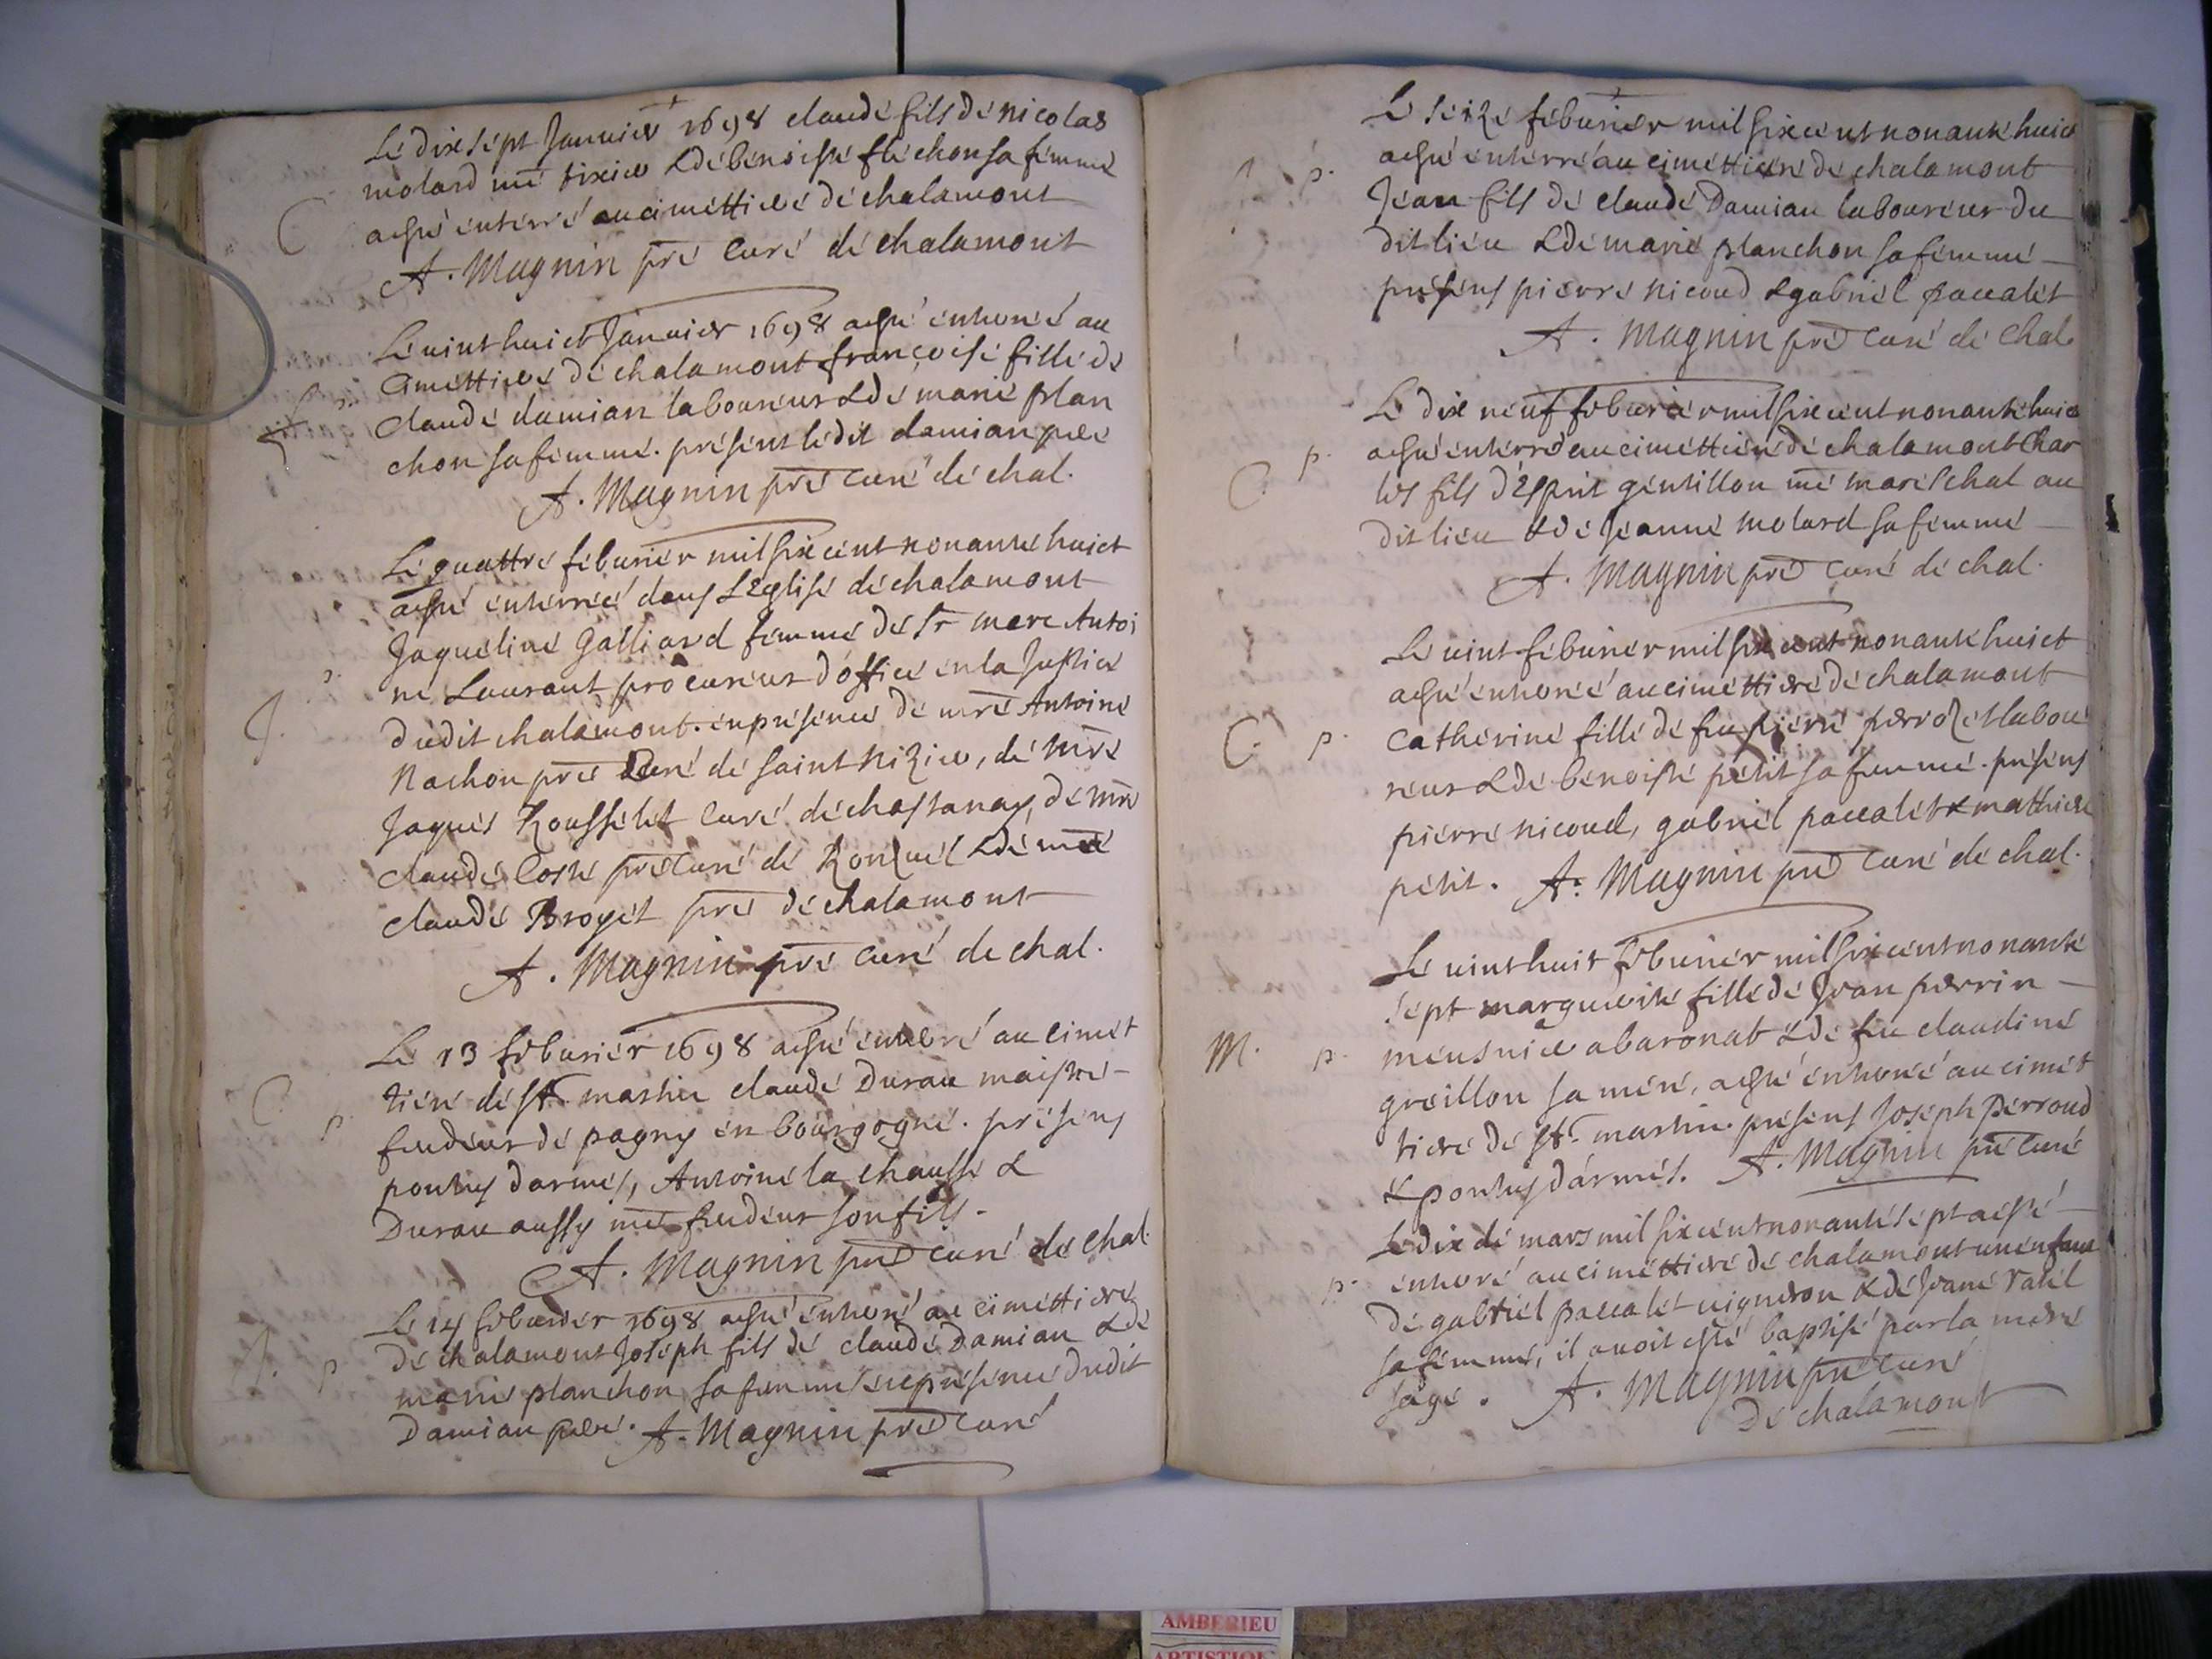 Le dix sept Januier 1698 claude fils de nicolas
molard mē tixier & de benoiste flechon sa femme
C
a esté enterré au cimettiere de chalamont
A. Magnin prē curé de chalamont
Le uint huict Januier 1698 a esté enterré au
cimettiere de chalamont françoise fille de
claude damian laboureur & de marie plan
chon sa femme. présent ledit damian pere
A. Magnin prē curé de chal.
Le quattre feburier mil six cent nonante huict
a esté enterreé dans L'Eglise de chalamont
Jaqueline Galliard femme de sr marc Antoi
ne Laurant procureur d'office en la Justice
J.
dudit chalamont. en presence de mrē Antoine
Nachon prē Curé de saint Nizier, de Mrē
Jaques Rousselet curé de chastanay, de mrē
claude Coste prē curé de Ronzuel & de mrē
claude Broyet prē de chalamont
A. Magnin prē curé de chal.
Le 13 feburier 1698 a esté enterré au cimet
C. p.
tiere de st. martin claude Durau maistre
fendeur de pagny en bourgogne. présens
pontus darmes, Antoine la chausse &
Durau aussy mē fendeur son fils.
A. Magnin prē curé de chal.
Le 14 feburier 1698 a esté enterré au cimettiere
J. p.
de chalamont Joseph fils de claude Damian & de
marie planchon sa femme en presence dudit
Damian pere. A. Magnin prē curé
Le seize feburier mil six cent nonante huict
J. p.
a esté enterré au cimettiere de chalamont
Jean fils de claude Damian laboureur du
dit lieu & de marie planchon sa femme
présens pierre nicoud & gabriel paccalet
A. Magnin prē curé de chal.
Le dix neuf feburier mil six cent nonante huict
C. p.
a esté enterré au cimettiere de chalamont Char
les fils d'Esprit gentillon mē mareschal au
dit lieu & de Jeanne molard sa femme
A. Magnin prē curé de chal.
Le uint feburier mil six cent nonante huict
a esté enterré au cimettiere de chalamont
C. p.
catherine fille de feu pierre perrozet labou
reur & de benoiste petit sa femme. présens
pierre nicoud, gabriel paccalet & mathieu
petit. A. Magnin prē curé de chal.
Le uint huit feburier mil six cent nonante
sept marguerite fille de Jean perrin
M. p.
meusnier a baronat & de feu claudine
greillon sa mere, a esté enterré au cimet
tiere de st. martin. présens Joseph perroud
& pontus darmes. A. Magnin prē curé
Le dix de mars mil six cent nonante sept a esté
p.
enterré au cimettiere de chalamont un enfant
de gabriel paccalet uigneron & de Jeane ratel
sa femme, il auoit esté baptisé par la mere
sage. A. Magnin prē curé
de chalamont
AMBERIEU